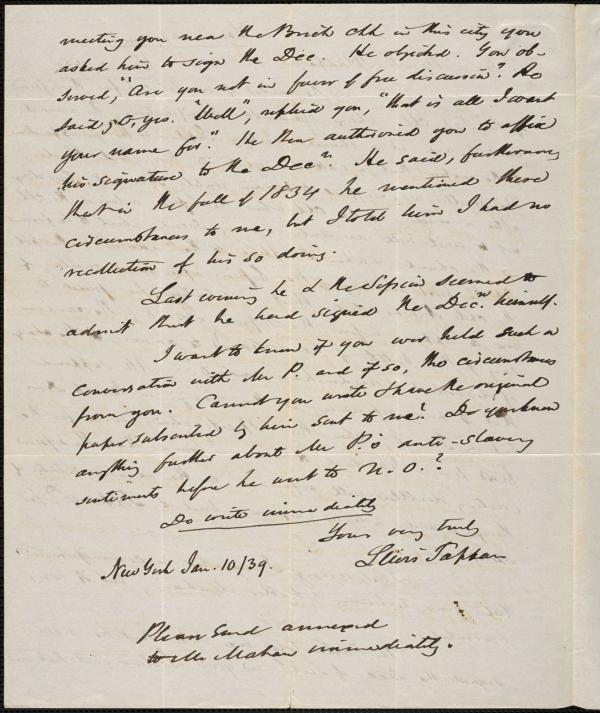 meeting you near the Brick Chh in this city you
asked him to sign the Dec. He objected. You ob-
served, "Are you not in favor of free discussion"? He
said, O, yes. "Well", replied you, "that is all I want
your name for." He then authorized you to affix
his signature to the Decn. He said, furthermore,
that in the fall of 1834 he mentioned these
circumstances to me, but I told him I had no
recollection of his so doing.
Last evening he & the Session seemed to
admit that he had signed the Decn. himself.
I want to know if you ever held such a
conversation with Mr P. and if so, the circumstances
from you. Cannot you write & have the original
paper subscribed by him sent to me? Do you know
anything further about Mr P.'s anti-slavery
sentiments before he went to N.O.?
Do write immediately
Yours very truly
Lewis Tappan
New York Jan. 10/39.
Please send annexed
to Mr Mahan immediately.